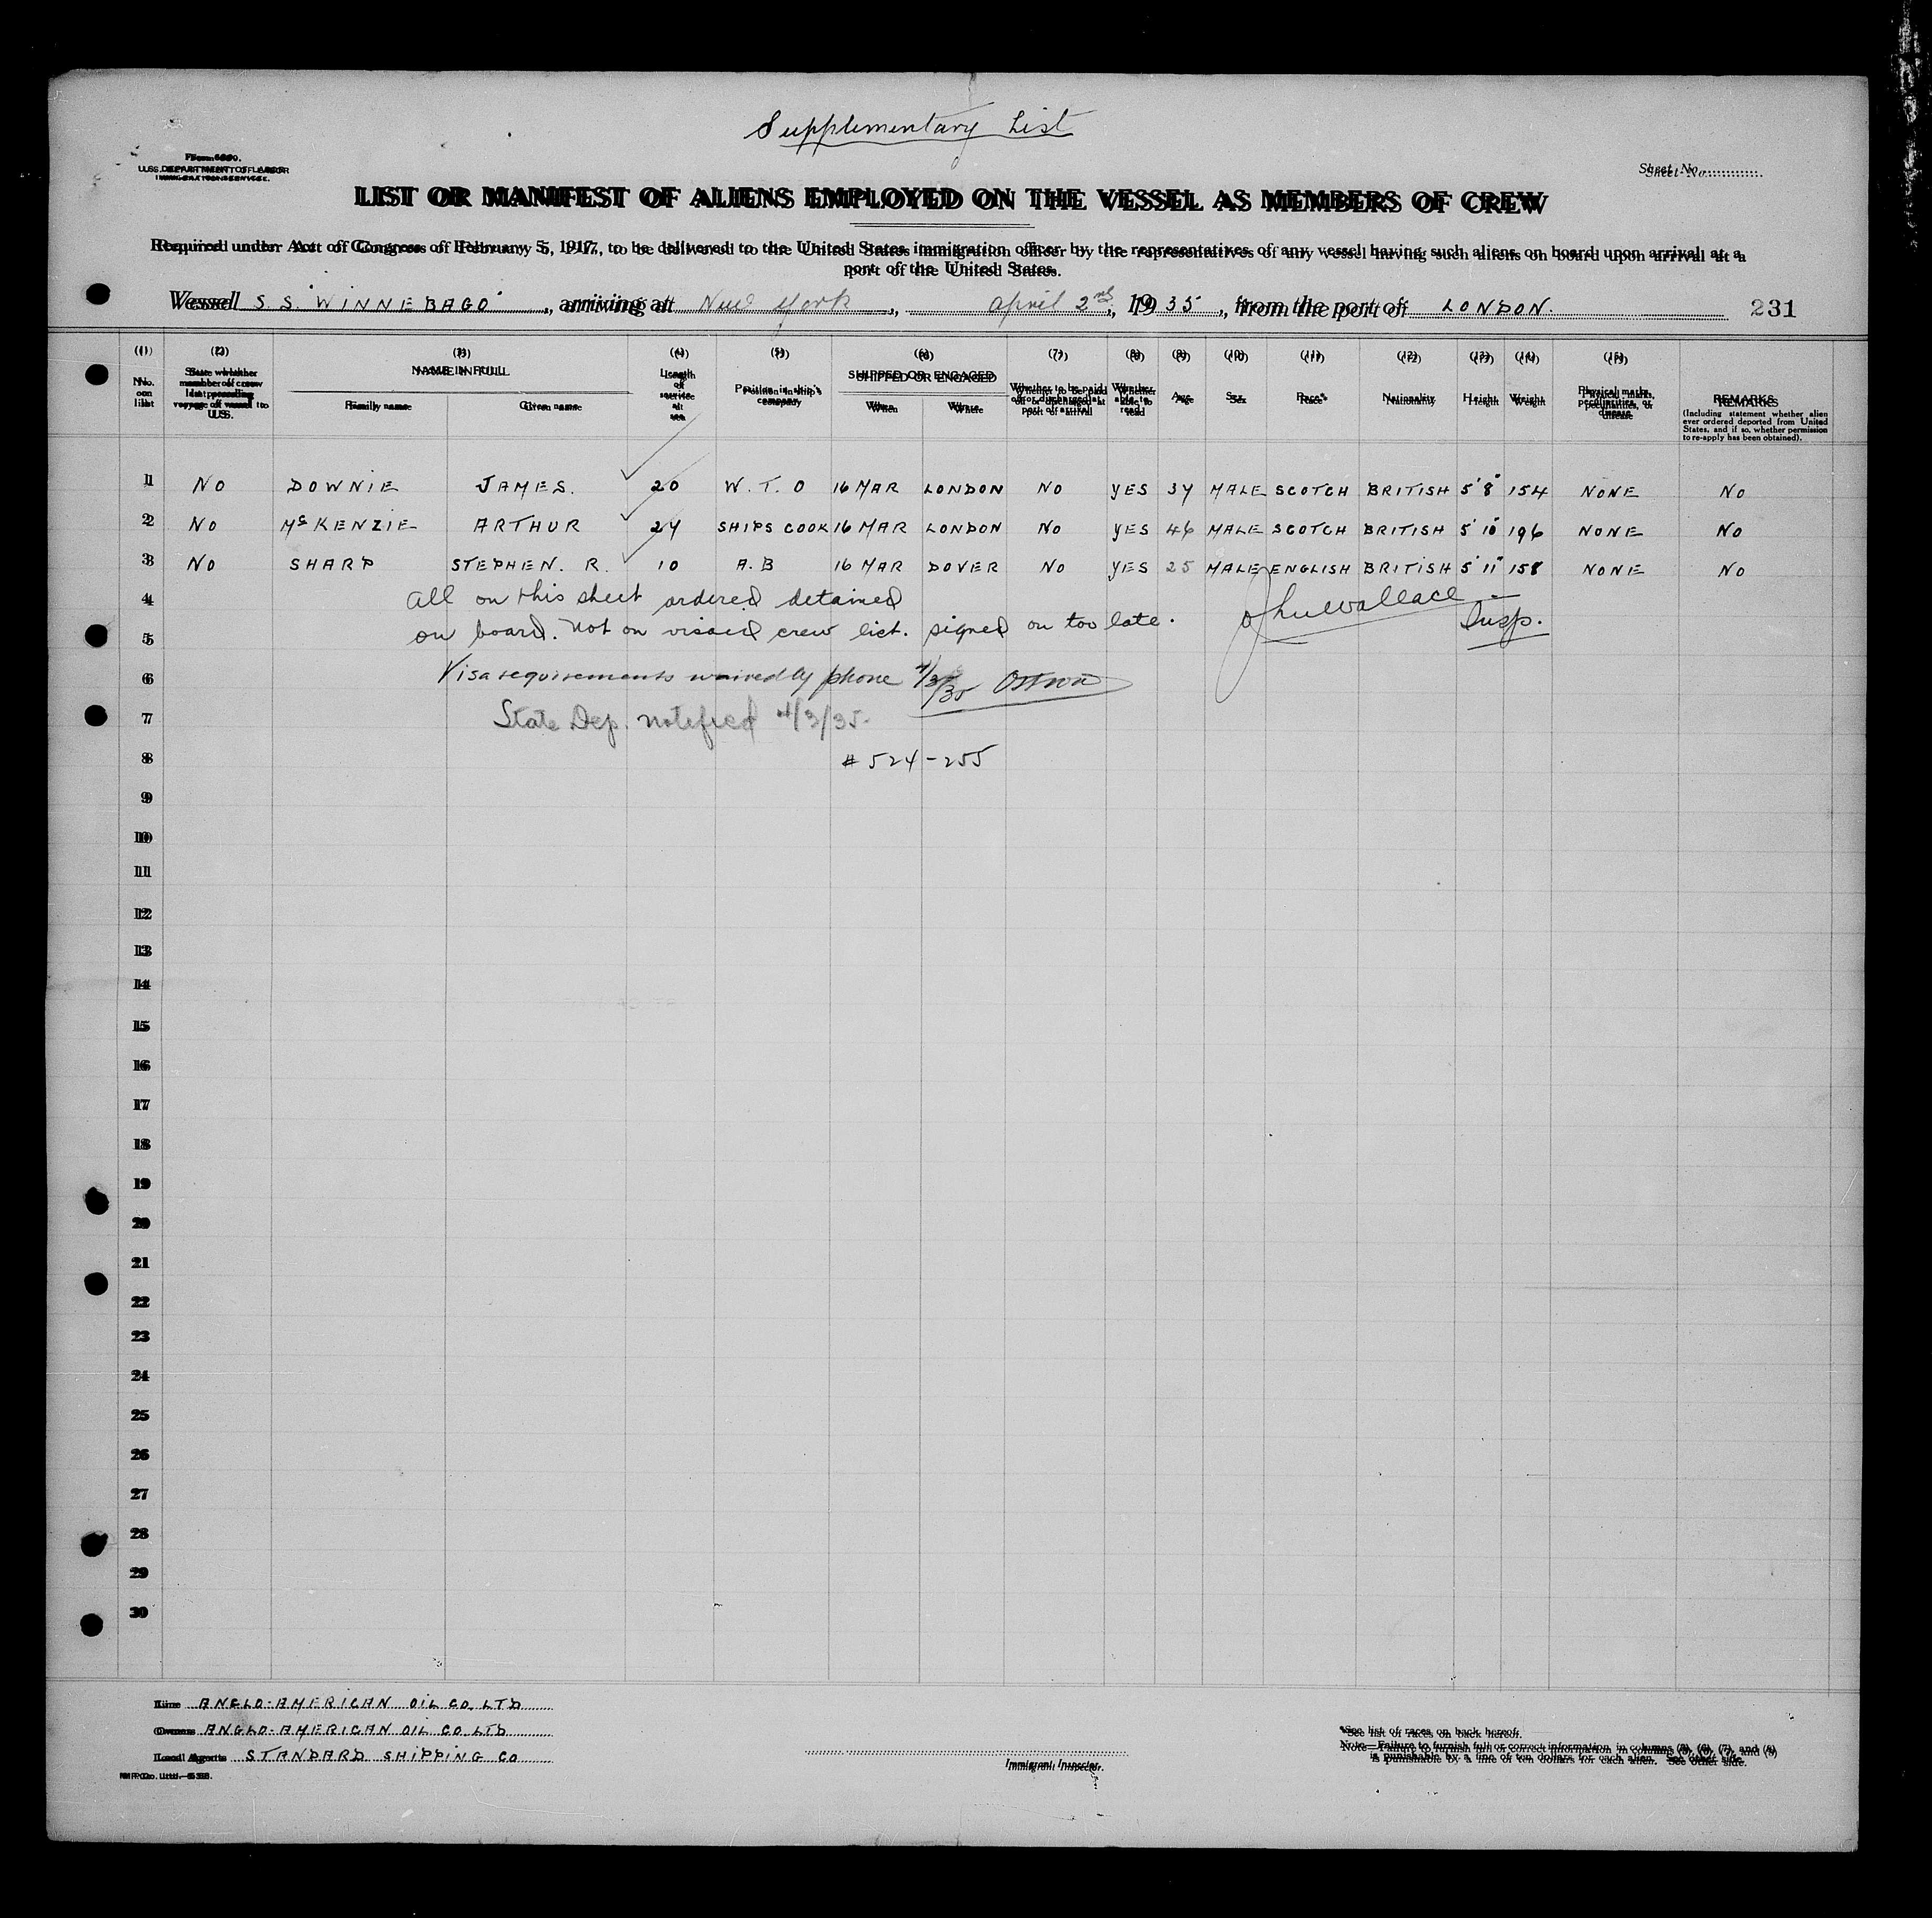 Supplementary List
U.S. DEPARTMENT OF LABOR
IMMIGRATION SERVICE.
Sheet No.
LIST OR MANIFEST OF ALIENS EMPLOYED ON THE VESSEL AS MEMBERS OF CREW
Required under Act of Congress of February 5, 1917, to be delivered to the United States immigration officer by the representatives of any vessel having such aliens on board upon arrival at a
port of the United States.
Vessel S. S. "WINNEBAGO", arriving at New York, April 2nd, 1935, from the port of LONDON. 231
(1) (2) (3) (4) (5) (6) (7) (8) (9) (10) (11) (12) (13) (14) (15)
No. on list
State whether member of crew last preceding voyage of vessel to U.S.
NAME IN FULL
Family name Given name
Length of service at sea
Position in ship's company
SHIPPED OR ENGAGED
When Where
Whether to be paid off or discharged at port of arrival
Whether able to read
Age
Sex
Race*
Nationality
Height
Weight
Physical marks, peculiarities, or disease
REMARKS
(Including statement whether alien ever ordered deported from United States, and if so, whether permission to re-apply has been obtained).
1 NO DOWNIE JAMES. 20 W. T. O 16 MAR LONDON NO YES 37 MALE SCOTCH BRITISH 5'8" 154 NONE NO
2 NO McKENZIE ARTHUR 27 SHIPS COOK 16 MAR LONDON NO YES 46 MALE SCOTCH BRITISH 5'10" 196 NONE NO
3 NO SHARP STEPHEN. R. 10 A.B 16 MAR DOVER NO YES 25 MALE ENGLISH BRITISH 5'11" 158 NONE NO
4 All on this sheet ordered detained
5 on board. Not on visaed crew list. signed on too late. Wallace Insp.
6 Visa requirements waived by phone
7 State Dep. notified 4/3/35
8 # 524-255
9
10
11
12
13
14
15
16
17
18
19
20
21
22
23
24
25
26
27
28
29
30
Line ANGLO-AMERICAN OIL CO. LTD
Owners ANGLO-AMERICAN OIL CO. LTD
Local Agents STANDARD SHIPPING CO
Immigrant Inspector.
*See list of races on back hereof.
Note—Failure to furnish full or correct information in columns (3), (6), (7), and (8)
is punishable by a fine of ten dollars for each alien. See other side.